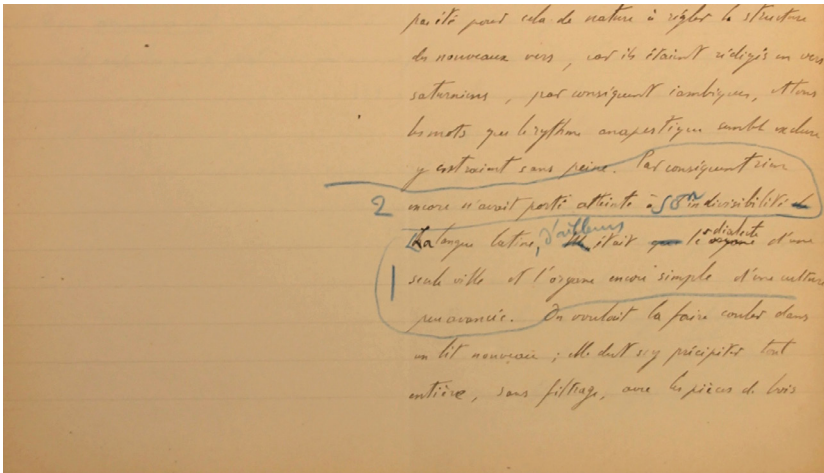 pas été pour cela de nature à régler la structure
des nouveaux vers, car ils étaient rédigés en vers
saturniens, par conséquent iambiques, et tous
les mots que le rythme anapestique semble exclure
y entraient sans peine. Par conséquent rien
2 encore n'avait porté atteinte à son indivisibilité de
La langue latine, d'ailleurs elle était que le organe dialecte d'une
1 seule ville et l'organe encore simple d'une culture
peu avancée. On voulait la faire couler dans
un lit nouveau ; elle dut s'y précipiter tout
entière, sans filtrage, avec les pièces de bois